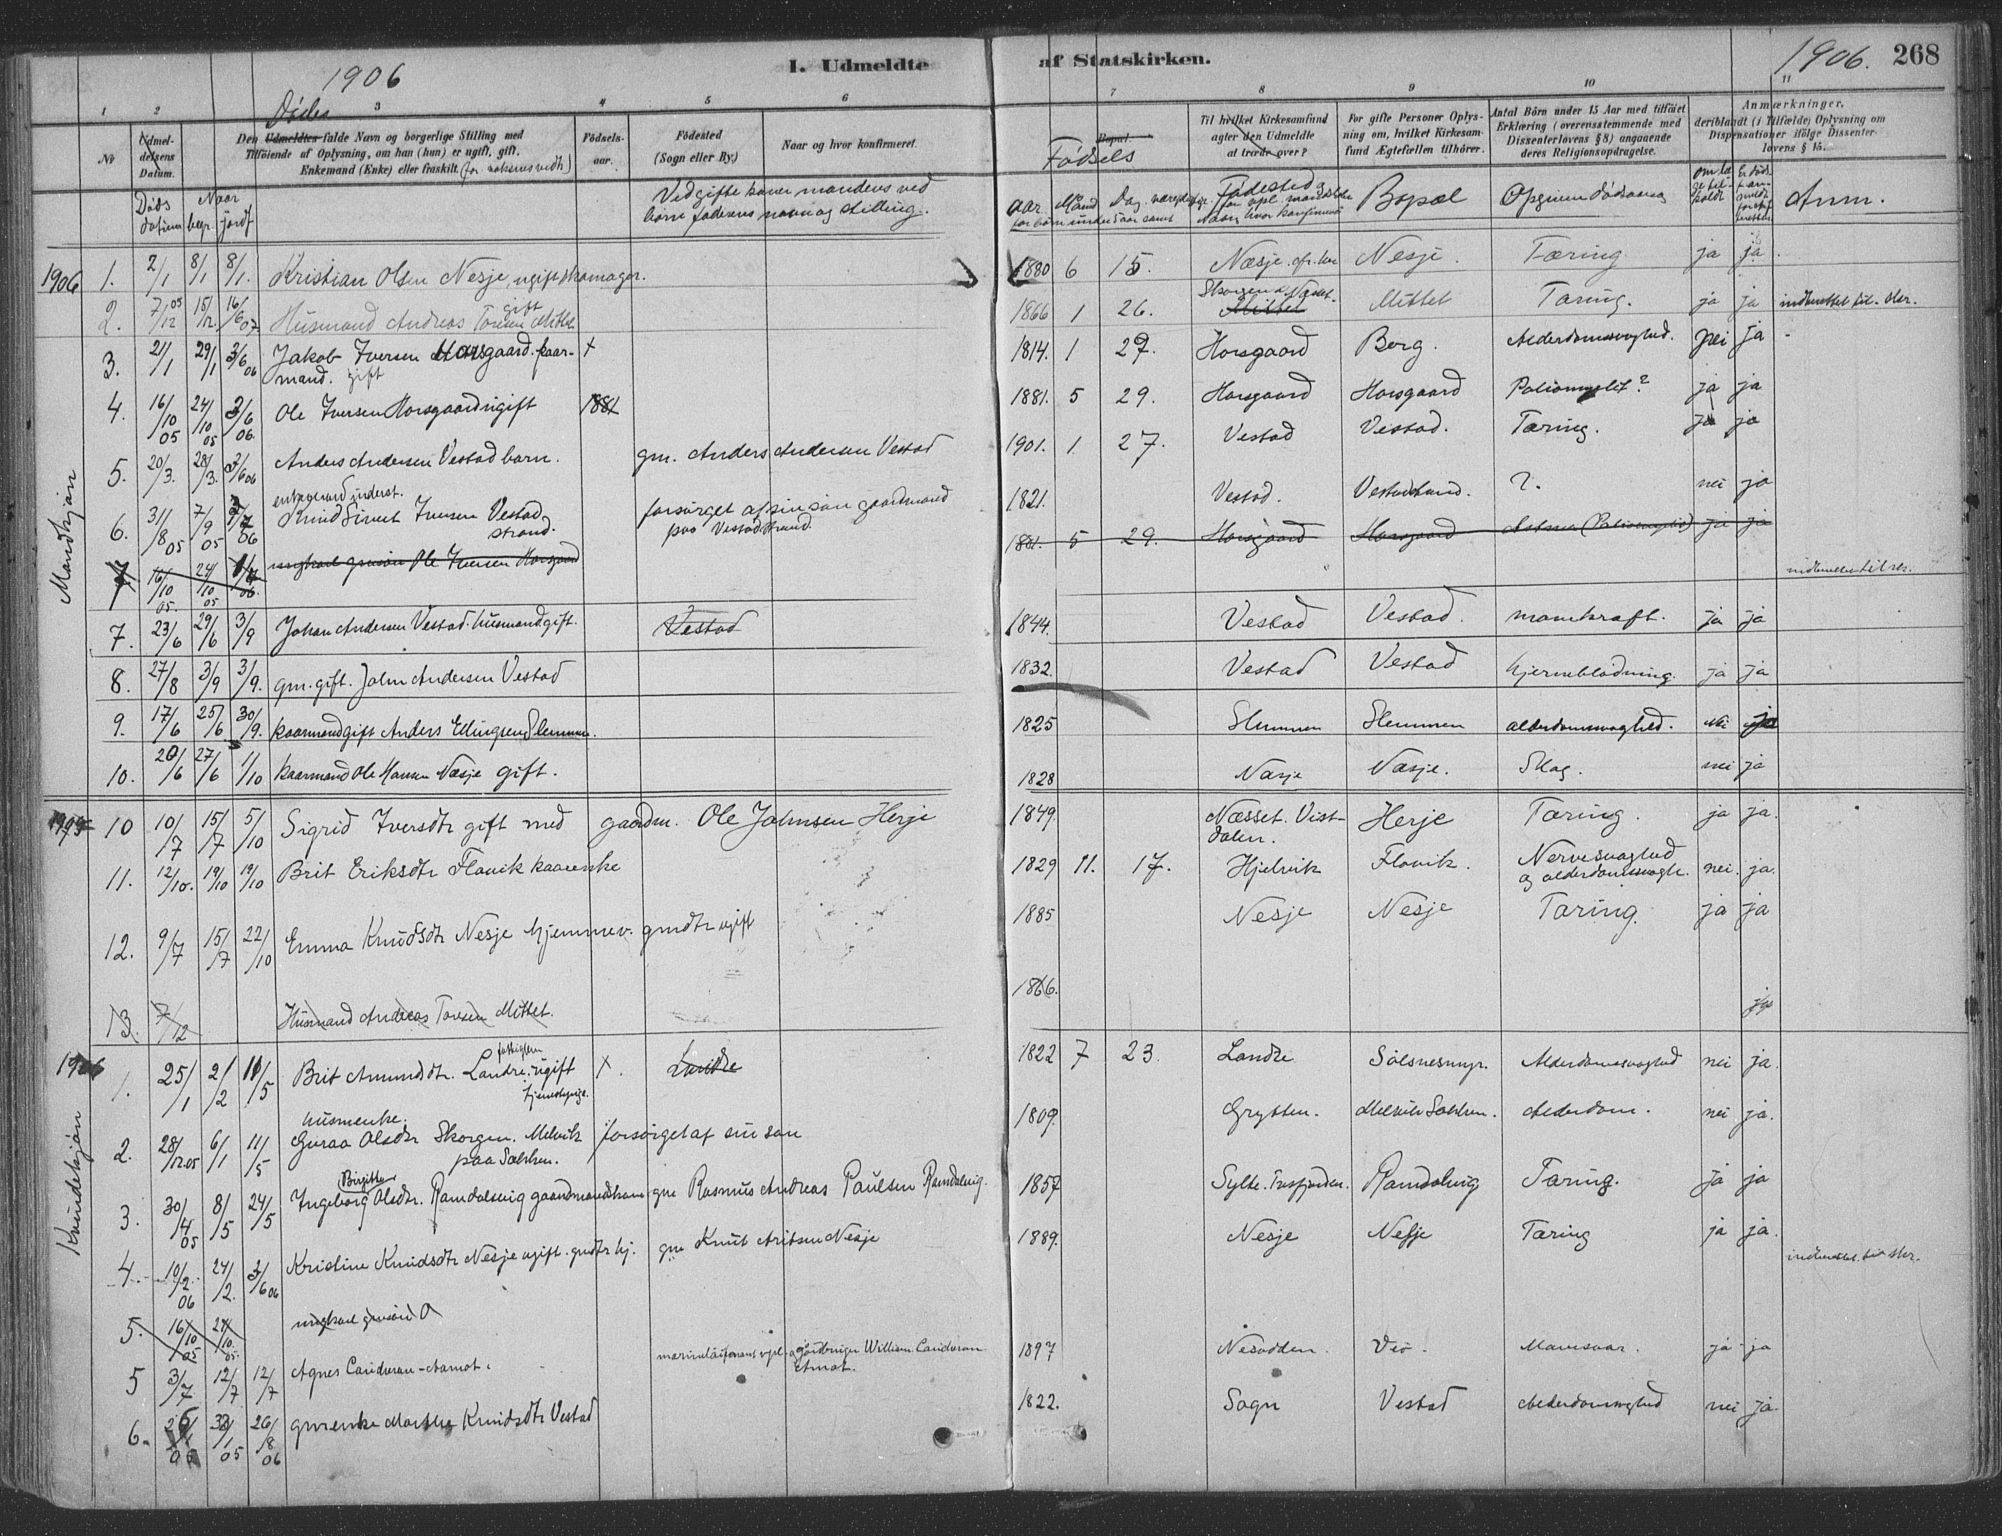 1906
I. Udmeldte af Statskirken.
1906. 268
1 2 3 4 5 6 7 8 9 10 11
Døde
No
Udmeldelsens Datum.
Den Udmeldtes fulde Navn og borgerlige Stilling med
Tilføiende af Oplysning, om han (hun) er ugift, gift,
Enkemand (Enke) eller fraskilt.
Fødselsaar.
Fødested
(Sogn eller By.)
Naar og hvor konfirmeret.
Bopæl.
Fødsels
Til hvilket Kirkesamfund
agter den Udmeldte
at træde over?
For gifte Personer Oplysning
om, hvilket Kirkesamfund
Ægtefællen tilhører.
Antal Børn under 15 Aar med tilføiet
Erklæring (overensstemmende med
Dissenterlovens § 8) angaaende
deres Religionsopdragelse.
Anmærkninger,
deriblandt (i Tilfælde) Oplysning om
Dispensationer ifølge Dissenterlovens
§ 15.
Døds datum
Naar begr. jordf
Ved gifte koner mandens ved
børn faderens navn og stilling.
aar Maaned Dag
Fødested
Bopæl
Opgiven dødsaarsag
Anm.
Mandkjøn
1906 1. 2/1 8/1 8/1. Kristian Olsen Nesje, ugift skomager. 1880 6 15. Næsje Nesje. Tæring ja ja
2. 7/12 05 15/12. 16/6 07 Husmand Andreas Toresen Mittet gift 1866 1 26. Skorgen Næset. Mittet Mittet Tæring. ja ja
3. 21/1 29/1 3/6 06 Jakob Iversen Horsgaard. kaarmand. gift + 1814. 1 27. Horsgaard Berg. Alderdomssvaghed. nei ja
4. 16/10 05 24/10 05 3/6 06. Ole Iversen Horsgaard ugift 1881 1881. 5 29. Horsgaard Horsgaard Poliomyelit? ja ja
5. 20/3. 28/3. 3/6 06 Anders Andersen Vestad barn. gm. Anders Andersen Vestad 1901. 1 27. Vestad Vestad. Tæring. ja ja
6. 31/8 05 7/9 05 06 enkemand inderst. Knud Sivert Iversen Vestad strand. forsørget af sin søn gaardmand paa Vestadstrand. 1821. Vestad. Vestadstrand. ?. nei ja
7 16/10 05. 24/10 05 06. ungkarl gmsøn Ole Iversen Horsgaard 1881. 5 29. Horsgaard Horsgaard ja ja
7. 23/6 29/6 3/9 Johan Andersen Vestad. husmand gift. Vestad 1844. Vestad Vestad. mavekræft. ja ja
8. 27/8 3/9 3/9. gm. gift. John Andersen Vestad 1832. Vestad Vestad hjerneblødning. ja ja
9. 17/6 25/6 30/9. kaarmand gift Anders Ellingsen Slemmen. 1825 Slemmen Slemmen alderdomssvaghed. nei ja
10. 20/6 27/6 1/10 kaarmand Ole Hansen Næsje gift. 1828 Næsje Næsje. Slag. nei ja
1905 10 10/7 15/7 5/10 Sigrid Iversdtr gift med gaardm. Ole Johnsen Herje 1849. Næsset. Vistdalen. Herje Tæring. ja ja
11. 12/10. 19/10 19/10 Brit Eriksdtr Flovik kaarenke 1829 11. 17. Hjelvik Flovik. Nervesvaghed og alderdomssvagh. nei. ja.
12. 9/7 15/7 22/10 Emma Knudsdtr Nesje hjemmev. gmdtr ugift 1885 Nesje Nesje Tæring. ja ja
13. 7/12 Husmand Andreas Toresen Mittet. 1866. ja
Kvindekjøn
1906 1. 25/1 2/2 11/5 Brit Amundsdtr. Landre. ugift +. Landre 1822 7 23. Landre Sølsnesmyr. Alderdomssvaghed nei ja.
2. 28/12 05 6/1 11/5 husmenke. Guraa Olsdtr Skorgen. Melvik paa Sælthen. forsørget af sin søn 1809. Grytten. Alderdom. nei ja.
3. 30/4 05 8/5 24/5 Ingeborg Birgitte Olsdtr. Ramdalsvig gaardmandskone gm Rasmus Andreas Paulsen Ramdalsvig. 1857 Sylte. Tresfjorden. Ramdalsvig Tæring. Ja ja
4. 10/2 06 24/2. 3/6 06 Kristine Knudsdtr Nesje ugift. gmdtr hj. gm Knut Nesje 1889. Nesje Nesje Tæring ja ja.
5. 16/10 05 24/10 05. ungkarl gmsøn O
5 3/7 12/7 12/7 Agnes 1897 Nesodden. Veø. ja ja
6. 05 05 26/8 06 gmenke Marthe Knudsdtr Vestad 1822. Sogn Vestad Alderdomssvaghed nei ja.